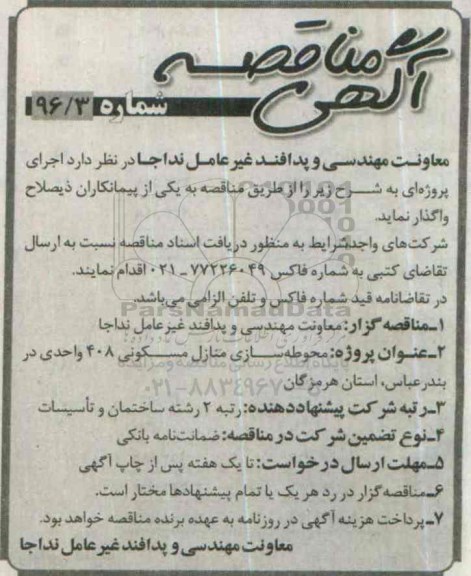 آگهی مناقصه
شماره ۹۶/۳
معاونت مهندسی و پدافند غیر عامل نداجا در نظر دارد اجرای
پروژه‌ای به شرح زیر را از طریق مناقصه به یکی از پیمانکاران ذیصلاح
واگذار نماید.
شرکت‌های واجدشرایط به منظور دریافت اسناد مناقصه نسبت به ارسال
تقاضای کتبی به شماره فاکس ۷۷۲۲۶۰۴۹-۰۲۱ اقدام نمایند.
در تقاضانامه قید شماره فاکس و تلفن الزامی می‌باشد.
ParsNamadData
۱ـ مناقصه گزار: معاونت مهندسی و پدافند غیرعامل نداجا
۲ـ عنوان پروژه: محوطه‌سازی منازل مسکونی ۴۰۸ واحدی در
پایگاه اطلاع رسانی مناقصه و مزایده
بندرعباس، استان هرمزگان
۰۲۱-۸۸۳۴۹۶۷۰
۳ـ رتبه شرکت پیشنهاددهنده: رتبه ۲ رشته ساختمان و تأسیسات
۴ـ نوع تضمین شرکت در مناقصه: ضمانت‌نامه بانکی
۵ـ مهلت ارسال درخواست: تا یک هفته پس از چاپ آگهی
۶ـ مناقصه‌گزار در رد هر یک یا تمام پیشنهادها مختار است.
۷ـ پرداخت هزینه آگهی در روزنامه به عهده برنده مناقصه خواهد بود.
معاونت مهندسی و پدافند غیر عامل نداجا